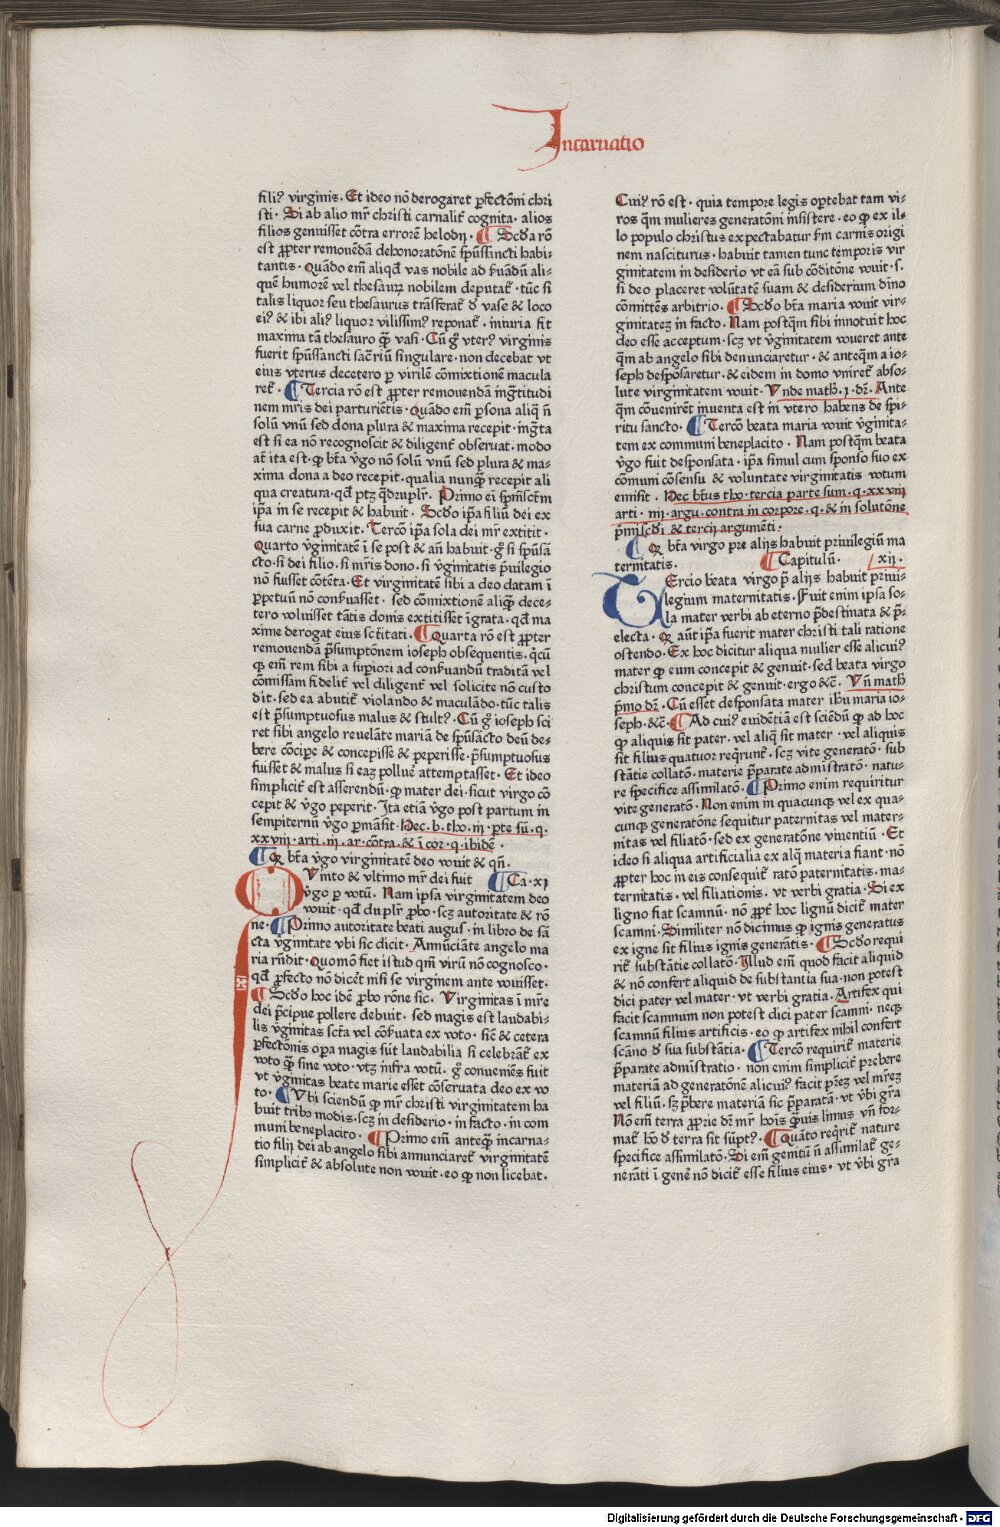 Incarnatio
filiꝰ virginis. Et ideo nō derogaret ꝑfectōni chri
sti. Si ab alio mr̄ christi carnalit̄ cognita. alios
filios genuisset cōtra errorē helodij. Scd̄a rō
est ꝓpter remouēdā dehonoratōnē sp̄ussancti habi
tantis. Quādo em̄ aliqd̄ vas nobile ad ẜuādū ali-
quē humorē vel thesauꝝ nobilem deputat̄. tūc si
talis liquor seu thesaurus trāsferat̄ d̄ vase & loco
eiꝰ & ibi aliꝰ liquor vilissimꝰ reponat̄. iniuria fit
maxima tā thesauro qᷓꝫ vasi. Cū g̊ vterꝰ virginis
fuerit sp̄ussancti sac̄riū singulare. non decebat vt
eius vterus decetero ꝑ virilē cōmixtionē macula
ret̄. Tercia rō est ꝓpter remouendā ing̊titudi
nem mr̄is dei parturiētis. Quādo em̄ ꝑsona aliq̄ n̄
solū vnū sed dona plura & maxima recepit. ing̊ta
est si ea nō recognoscit & diligent̄ obseruat. modo
at̄ ita est. ꝙ bt̄a v̄go nō solū vnū sed plura & ma-
xima dona a deo recepit. qualia nunqᷓ recepit ali
qua creatura. qd̄ ptꝫ q̄druplr̄. Primo ei sp̄msct̄m
ip̄a in se recepit & habuit. Scd̄o ip̄a filiū dei ex
sua carne ꝓduxit. Tercō ip̄a sola dei mr̄ extitit.
Quarto v̄ginitatē ī se post & an̄ habuit. g̊ si sp̄usā
cto. si dei filio. si mr̄is dono. si v̄ginitatis p̄uilegio
nō fuisset cōtēta. Et virginitatē sibi a deo datam ī
ꝑpetuū nō cōẜuasset. sed cōmixtionē aliqᷓ dece-
tero voluisset tātis donis extitisset īgrata. qd̄ ma
xime derogat eius sc̄titati. Quarta rō est ꝓpter
remouendā p̄sumptōnem ioseph obsequentis. q̄cū
qꝫ em̄ rem sibi a suꝑiori ad cōẜuandū traditā vel
cōmissam fidelit̄ vel diligent̄ vel solicite nō custo
dit. sed ea abutit̄ violando & maculādo. tūc talis
est p̄sumptuosus malus & stultꝰ. Cū g̊ ioseph sci
ret sibi angelo reuelāte mariā de sp̄usācto deū de-
bere cōcipe & concepisse & peperisse. p̄sumptuosus
fuisset & malus si eaꝫ polluē attemptasset. Et ideo
simplicit̄ est asserendū. ꝙ mater dei. sicut virgo cō
cepit & v̄go peperit. Ita etiā v̄go post partum in
sempiternū v̄go ꝑmāsit. Hec. b. tho. iij. ꝑte sū. q.
xxviij. arti. iij. ar. cōtra. & ī cor. q. ibidē.
Qꝫ bt̄a v̄go virginitatē deo vouit & qn̄.
Vinto & vltimo mr̄ dei fuit Ca. xj
v̄go ꝑ votū. Nam ipsa virginitatem deo
vouit. qd̄ duplr̄ ꝓbo. scꝫ autoritate & rō
ne. Primo autoritate beati augus̄. in libro de sā
cta v̄ginitate vbi sic dicit. Annūciāte angelo ma
ria rn̄dit. Quomō fiet istud qm̄ virū nō cognosco.
qd̄ ꝓfecto nō dicēt nisi se virginem ante vouisset.
Scd̄o hoc idē ꝓbo rōne sic. Virginitas ī mr̄e
dei p̄cipue pollere debuit. sed magis est laudabi-
lis v̄ginitas scr̄ta vel cōẜuata ex voto. sic̄ & cetera
ꝑfectōnis oꝑa magis sūt laudabilia si celebrāt̄ ex
voto qᷓ sine voto. vtꝫ infra votū. g̊ conueniēs fuit
vt v̄ginitas beate marie esset cōseruata deo ex vo
to. Vbi sciendū ꝙ mr̄ christi virginitatem ha
buit tribꝰ modis. scꝫ in desiderio. in facto. in com
muni beneplacito. Primo em̄ anteqᷓ incarna-
tio filij dei ab angelo sibi annunciaret̄ virginitatē
simplicit̄ & absolute non vouit. eo ꝙ non licebat.
Cuiꝰ rō est. quia tempore legis optebat tam vi-
ros qᷓm mulieres generatōni insistere. eo ꝙ ex il-
lo populo christus expectabatur ẜm carnis origi
nem nasciturus. habuit tamen tunc temporis vir
ginitatem in desiderio vt eā sub cōditōne vouit. s.
si deo placeret volūtatē suam & desiderium dīno
cōmittēs arbitrio. Scd̄o bt̄a maria vouit vir-
ginitateꝫ in facto. Nam postqᷓm sibi innotuit hoc
deo esse acceptum. scꝫ vt v̄ginitatem voueret ante
qᷓm ab angelo sibi denunciaretur. & anteqᷓm a io-
seph desponsaretur. & eidem in domo vniret̄ abso-
lute virginitatem vouit. Vnde math̄. j. dr̄. Ante
qᷓm cōueniret̄ inuenta est in vtero habens de spi-
ritu sancto. Tercō beata maria vouit v̄ginita-
tem ex communi beneplacito. Nam postqᷓm beata
v̄go fuit desponsata. ip̄a simul cum sponso suo ex
cōmuni cōsensu & voluntate virginitatis votum
emisit. Hec bt̄us tho. tercia parte sum. q. xxviij
arti. iiij. argu. contra in corpore. q. & in solutōne
p̄mi scd̄i & tercij argumēti.
Qꝫ bt̄a virgo pre alijs habuit priuilegiū ma
ternitatis. Capitulū. xij.
Tercio beata virgo p̄ alijs habuit priui-
legium maternitatis. Fuit enim ipsa so-
la mater verbi ab eterno p̄destinata & p̄-
electa. Qꝫ aūt ip̄a fuerit mater christi tali ratione
ostendo. Ex hoc dicitur aliqua mulier esse alicuiꝰ
mater ꝙ eum concepit & genuit. sed beata virgo
christum concepit & genuit. ergo &c̄. Vn̄ math̄
p̄mo dr̄. Cū esset desponsata mater ih̄u maria io-
seph. &c̄. Ad cuiꝰ euidētiā est sciēdū ꝙ ad hoc
ꝙ aliquis sit pater. vel aliq̄ sit mater. vel aliquis
sit filius quatuor reqrunt̄. scꝫ vite generatō. sub
stātie collatō. materie p̄parate admistratō. natu-
re specifice assimilatō. Primo enim requiritur
vite generatō. Non enim in quacunqꝫ vel ex qua-
cunqꝫ generatōne sequitur paternitas vel mater-
nitas vel filiatō. sed ex generatōne viuentiū. Et
ideo si aliqua artificialia ex alq̄ materia fiant. nō
ꝓpter hoc in eis consequit̄ ratō paternitatis. ma-
ternitatis. vel filiationis. vt verbi gratia. Si ex
ligno fiat scamnū. nō ꝓpt̄ hoc lignū dicit̄ mater
scamni. Similiter nō dicimus ꝙ ignis generatus
ex igne sit filius ignis generātis. Scd̄o requi
rit̄ substātie collatō. Illud em̄ quod facit aliquid
& nō confert aliquid de substantia sua. non potest
dici pater vel mater. vt verbi gratia. Artifex qui
facit scamnum non potest dici pater scamni. neqꝫ
scamnū filius artificis. eo ꝙ artifex nihil confert
scāno d̄ sua substātia. Tercō requirit̄ materie
p̄parate admistratio. non enim simplicit̄ prebere
materiā ad generatōnē alicuiꝰ facit pr̄eꝫ vel mr̄eꝫ
vel filiū. sꝫ p̄bere materiā sic p̄paratā. vt v̄bi gr̄a
Nō em̄ terra ꝓprie dr̄ mr̄ hoīs qᷓuis limus vn̄ for-
mat̄ hō d̄ terra sit sūptꝰ. Quato reqrit̄ nature
specifice assimilatō. Si em̄ genitū n̄ assimilat̄ ge-
nerāti ī genē nō dicit̄ esse filius eius. vt v̄bi gr̄a
Digitalisierung gefördert durch die Deutsche Forschungsgemeinschaft - DFG